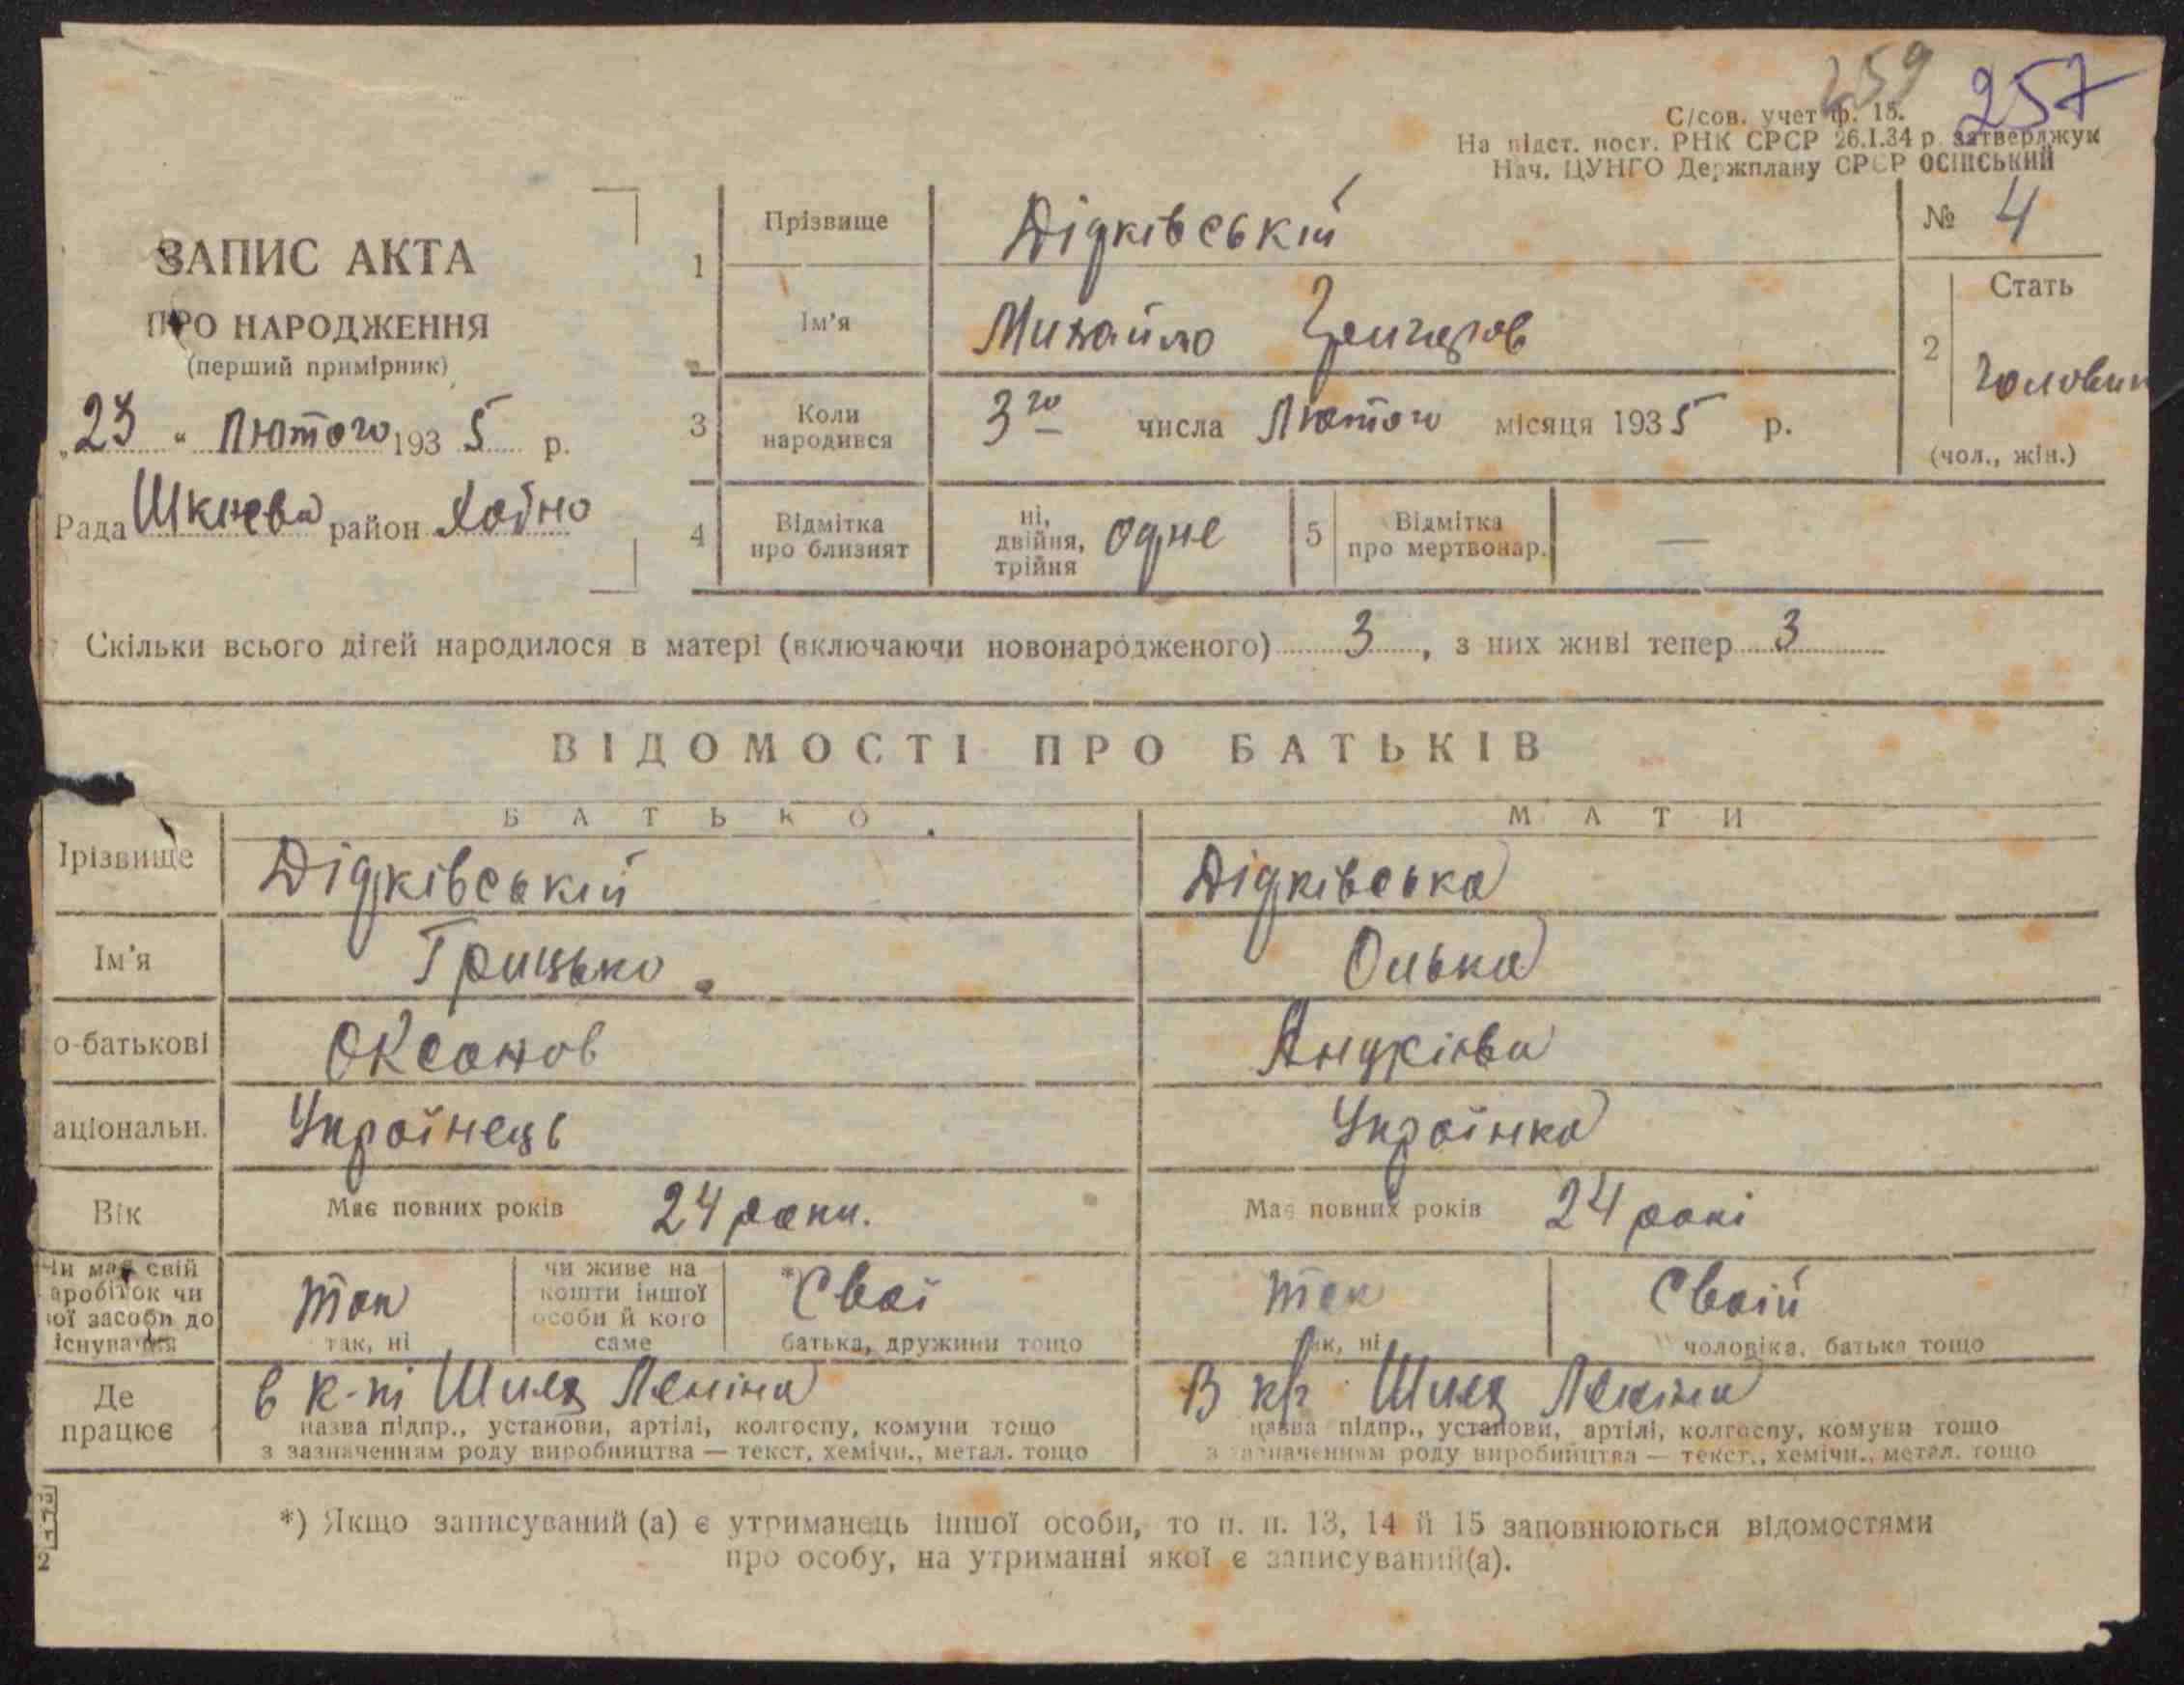 259 257
С/сов. учет ф. 15.
На підст. пост. РНК СРСР 26.I.34 р. затверджую
Нач. ЦУНГО Держплану СРСР ОСІНСЬКИЙ
ЗАПИС АКТА
ПРО НАРОДЖЕННЯ
(перший примірник)
„23 “ Лютого 193 5 р.
Рада Шкнева район Хабно
1 Прізвище Дідківський
№ 4
Ім'я Михайло
2 Стать
Чоловіч
(чол., жін.)
3 Коли народився 3го числа Лютого місяця 1935 р.
4 Відмітка про близнят ні, двійня, трійня одне
5 Відмітка про мертвонар. —
Скільки всього дітей народилося в матері (включаючи новонародженого) 3, з них живі тепер 3
ВІДОМОСТІ ПРО БАТЬКІВ
БАТЬКО МАТИ
Ірізвище Дідківській Дідківська
Ім'я Грицько Олька
о-батькові Оксанов
аціональн. Українець Українка
Вік Має повних років 24 роки. Має повних років 24 рокі
Чи має свій аробіток чи ої засоби до існування
так
так, ні
чи живе на кошти іншої особи й кого саме
*Свої
батька, дружини тощо
так
так, ні
Своїй
чоловіка, батька тощо
Де працює
в к-пі Шлях Леніна
назва підпр., установи, артілі, колгоспу, комуни тощо
з зазначенням роду виробництва — текст, хемічн., метал. тощо
В кг Шлях Леніна
назва підпр., установи, артілі, колгоспу, комуни тощо
з зазначенням роду виробництва — текст., хемічн., метал. тощо
*) Якщо записуваний (а) є утриманець іншої особи, то п. п. 13, 14 й 15 заповнюються відомостями
про особу, на утриманні якої є записуваний(а).